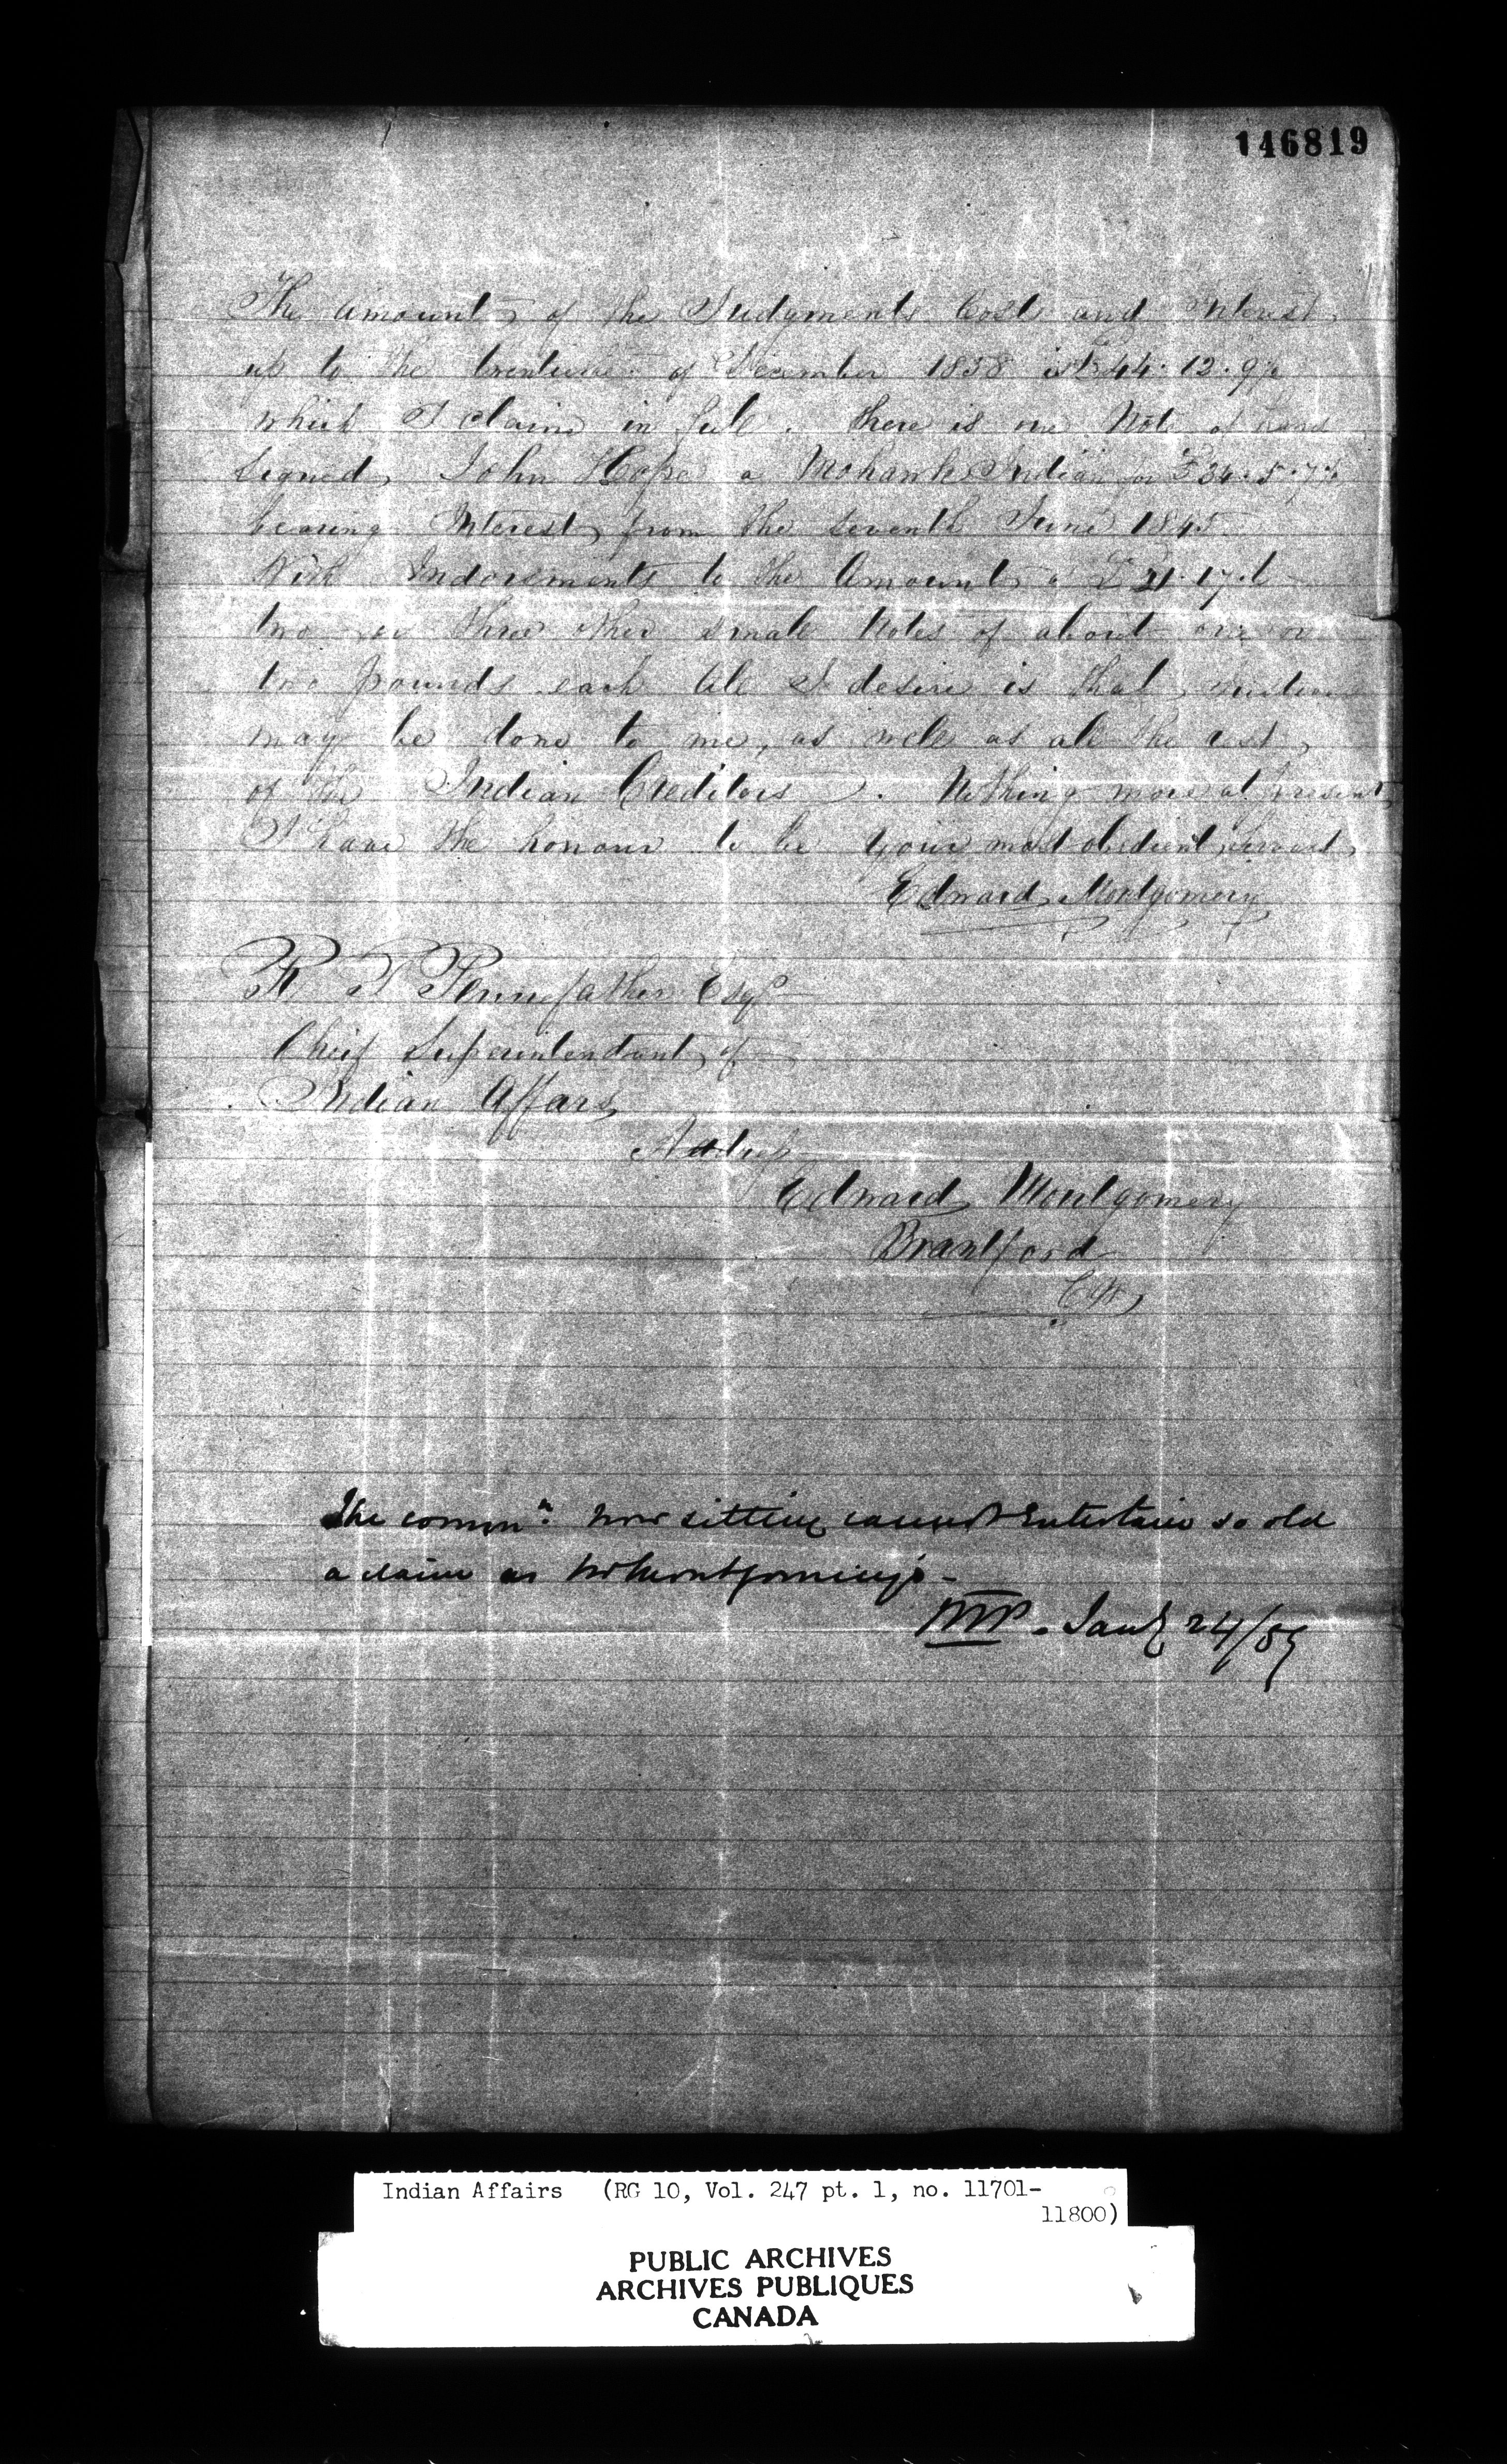 146819
The amount of the Judgments Cost and Interest
up to the twentieth of December 1858 is £44.12.9½
which I claim in full. there is one Note of hand
Signed John Hope a Mohawk Indian for £34.5.7½
bearing Interest from the Seventh June 1845
With Indorsments to the Amount of £21.17.
two or three other small Notes of about one or
two pounds each All I desire is that Justice
may be done to me, as well as all the rest,
of the Indian Creditors. Nothing more at present
I have the honour to be your most obedient Servant
Edward Montgomery
R T Pennefather Esqr
Cheif Superintendant of
Indian Affars
Address
Edward Montgomery
Brantford
CW
The commn. now sitting cannot Entertain so old
a claim as Mr Montgomery's -
Jany 24/59
Indian Affairs (RG 10, Vol. 247 pt. 1, no. 11701-
11800)
PUBLIC ARCHIVES
ARCHIVES PUBLIQUES
CANADA